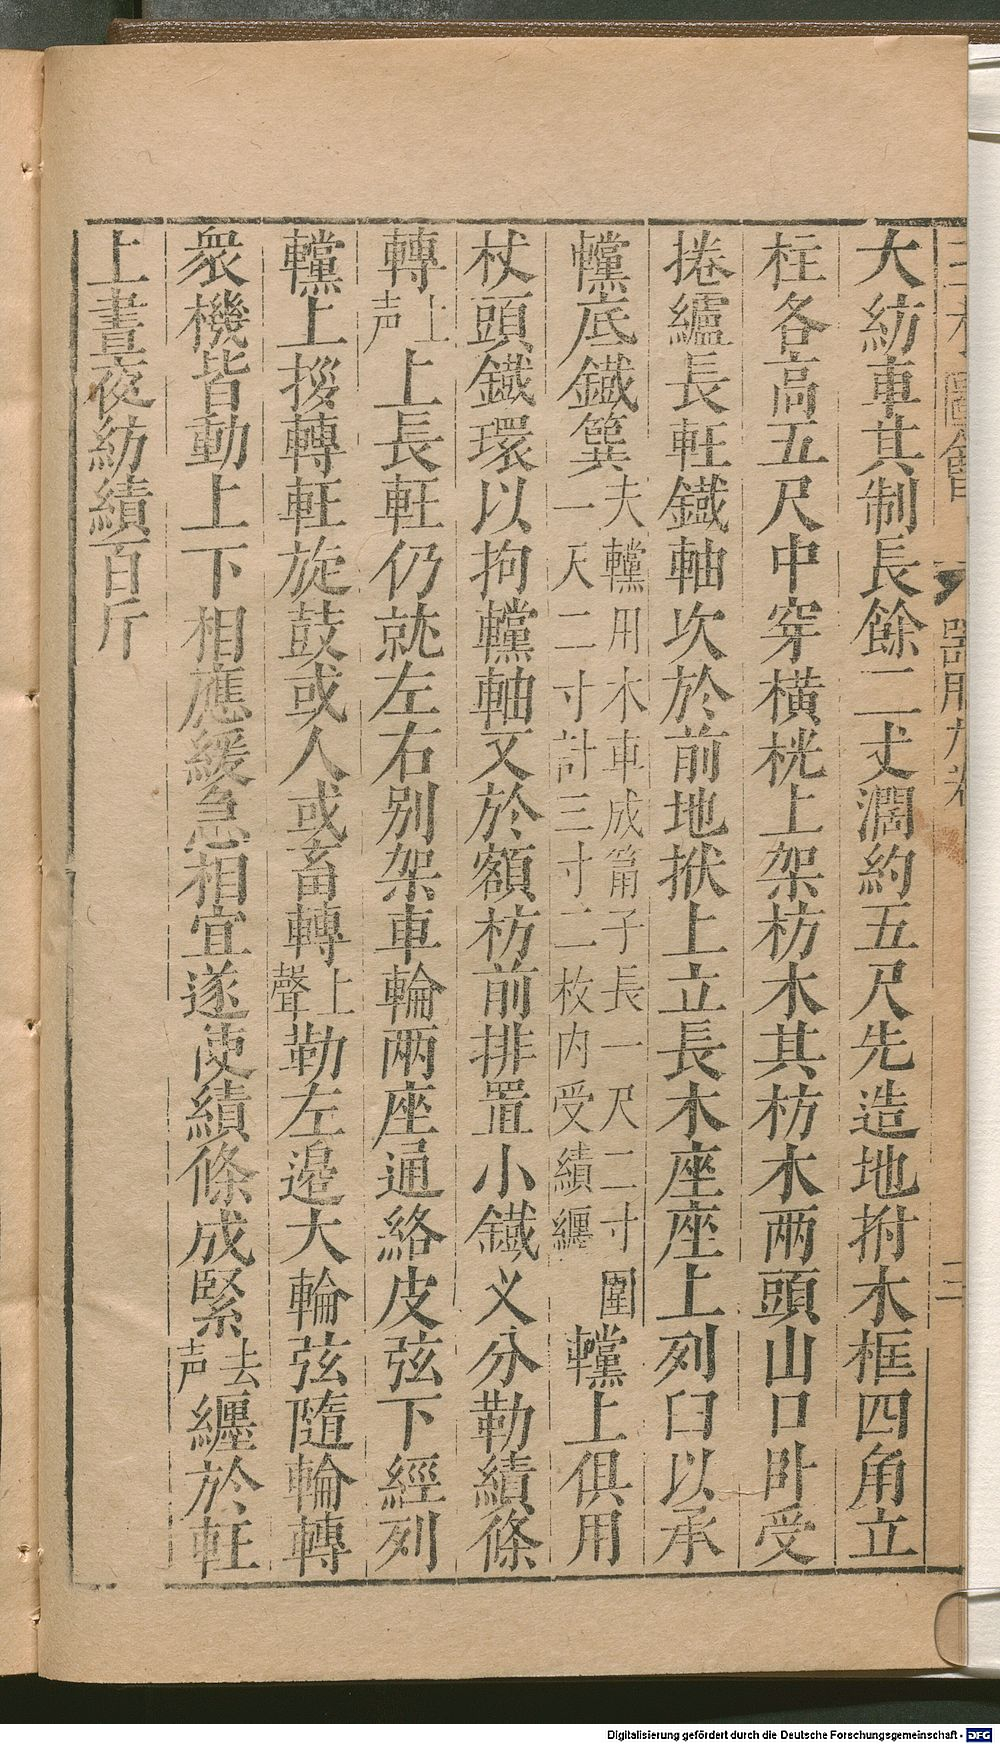 三才圖會 器用九卷 三
大紡車其制長餘二丈濶約五尺先造地拊木框四角立
柱各高五尺中穿橫桄上架枋木其枋木兩頭山口卧受
捲纑長軖鐵軸次於前地栿上立長木座座上列臼以承
轣底鐵簨夫轣用木車成筩子長一尺二寸圍
一尺二寸計三寸二枚内受績纏轣上俱用
杖頭鐵環以拘轣軸又於額枋前排置小鐵叉分勒績條
轉上声上長軖仍就左右別架車輪兩座通絡皮弦下經列
轣上拶轉軖旋鼓或人或畜轉上聲勒左邉大輪弦隨輪轉
衆機皆動上下相應緩急相宜遂使績條成緊去声纏於軖
上晝夜紡績百斤
Digitalisierung gefördert durch die Deutsche Forschungsgemeinschaft - DFG